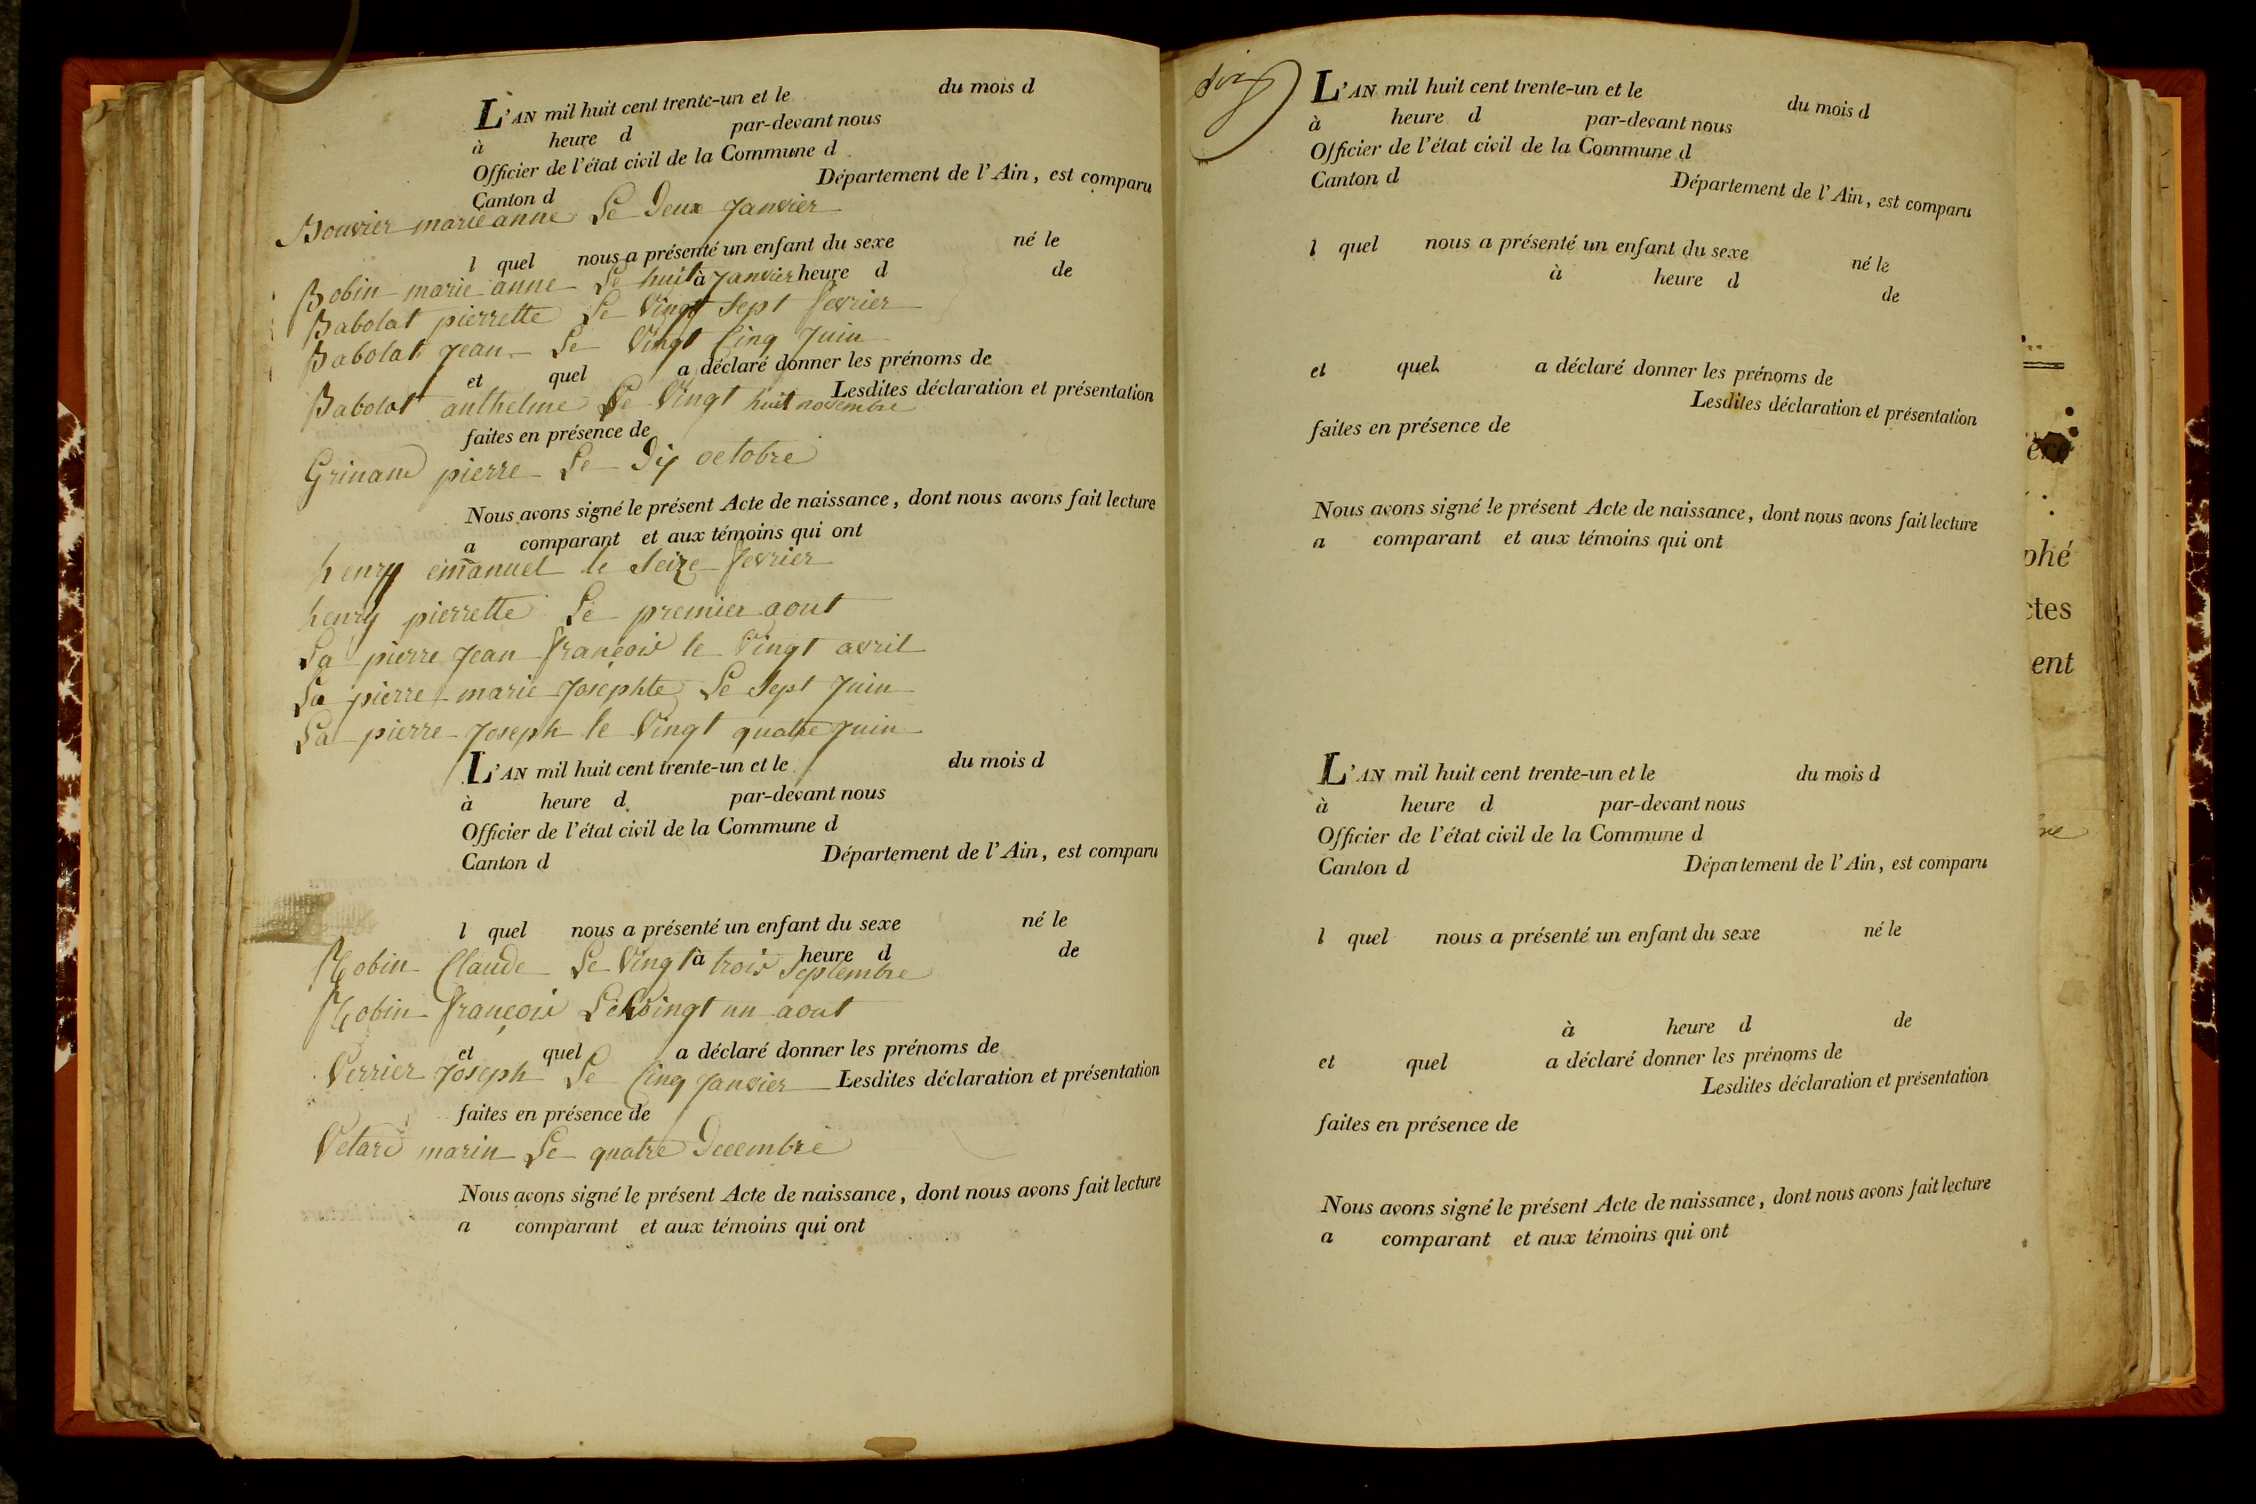 L'AN mil huit cent trente-un et le du mois d
à heure d par-devant nous
Officier de l'état civil de la Commune d
Canton d Département de l'Ain, est comparu
Bouvier marie anne Le Deux Janvier
l quel nous a présenté un enfant du sexe né le
à heure d de
Bobin marie anne Le huit Janvier
Babolat pierrette Le Vingt Sept fevrier
Babolat Jean Le Vingt Cinq Juin
et quel a déclaré donner les prénoms de
Lesdites déclaration et présentation
Babolat anthelme Le Vingt huit novembre
faites en présence de
Grinand pierre Le Dix octobre
Nous avons signé le présent Acte de naissance, dont nous avons fait lecture
a comparant et aux témoins qui ont
henry emanuel le Seize fevrier
henry pierrette Le premier aout
La pierre Jean françois le Vingt avril
La pierre marie Josephte Le Sept Juin
La pierre Joseph le Vingt quatre Juin
L'AN mil huit cent trente-un et le du mois d
à heure d par-devant nous
Officier de l'état civil de la Commune d
Canton d Département de l'Ain, est comparu
l quel nous a présenté un enfant du sexe né le
à heure d de
Robin Claude Le Vingt trois Septembre
Robin françois Le Vingt un aout
et quel a déclaré donner les prénoms de
Verrier Joseph Le Cinq Janvier
Lesdites déclaration et présentation
faites en présence de
Vetard marin Le quatre Decembre
Nous avons signé le présent Acte de naissance, dont nous avons fait lecture
a comparant et aux témoins qui ont
L'AN mil huit cent trente-un et le du mois d
à heure d par-devant nous
Officier de l'état civil de la Commune d
Canton d Département de l'Ain, est comparu
l quel nous a présenté un enfant du sexe né le
à heure d de
et quel a déclaré donner les prénoms de
Lesdites déclaration et présentation
faites en présence de
Nous avons signé le présent Acte de naissance, dont nous avons fait lecture
a comparant et aux témoins qui ont
L'AN mil huit cent trente-un et le du mois d
à heure d par-devant nous
Officier de l'état civil de la Commune d
Canton d Département de l'Ain, est comparu
l quel nous a présenté un enfant du sexe né le
à heure d de
et quel a déclaré donner les prénoms de
Lesdites déclaration et présentation
faites en présence de
Nous avons signé le présent Acte de naissance, dont nous avons fait lecture
a comparant et aux témoins qui ont
phé
ctes
ent